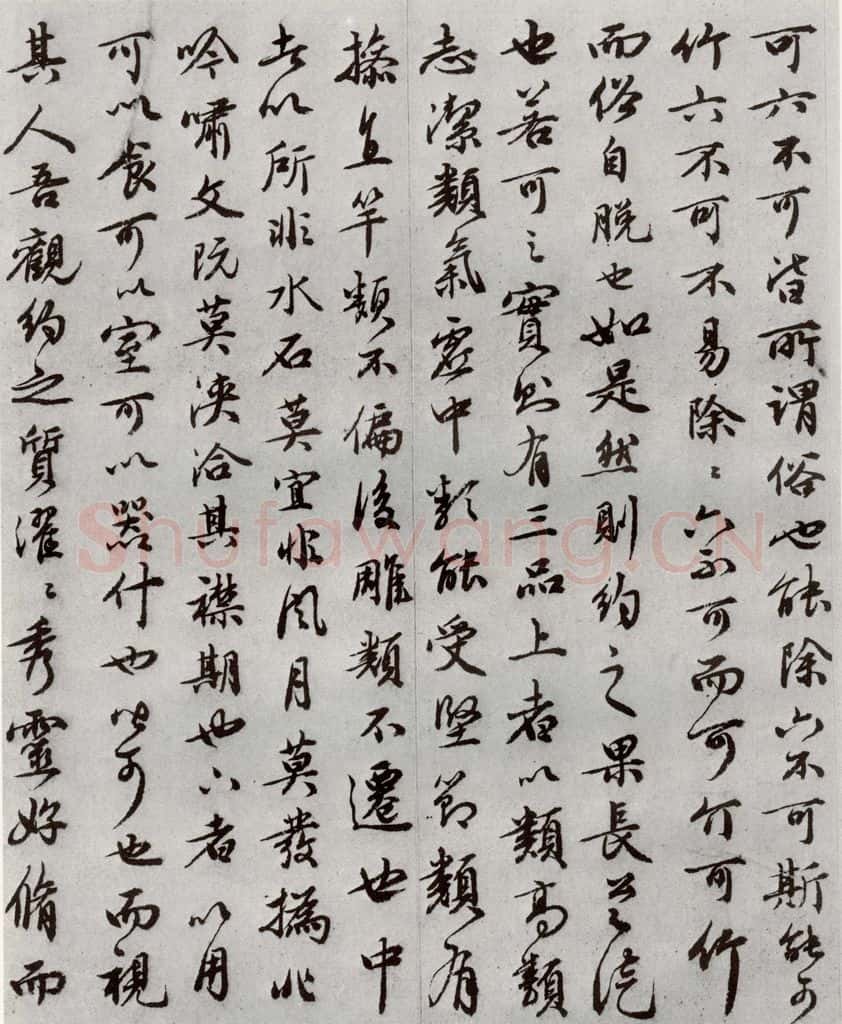 可六不可皆所謂俗也能除六不可斯能可
竹六不可不易除〻六不可而可可竹
而俗自脱也如是然則約之果長
也若可之實則有三品上者以類高類
志潔類氣虛中類能受堅節類有
操直竿類不偏後雕類不遷也中
者以所非水石莫宜非風月莫發攄非
吟嘯文阮莫浹洽其襟期也下者以用
可以食可以室可以器什也皆可也而視
其人吾觀約之質濯〻秀靈好脩而
Shufawang.CN